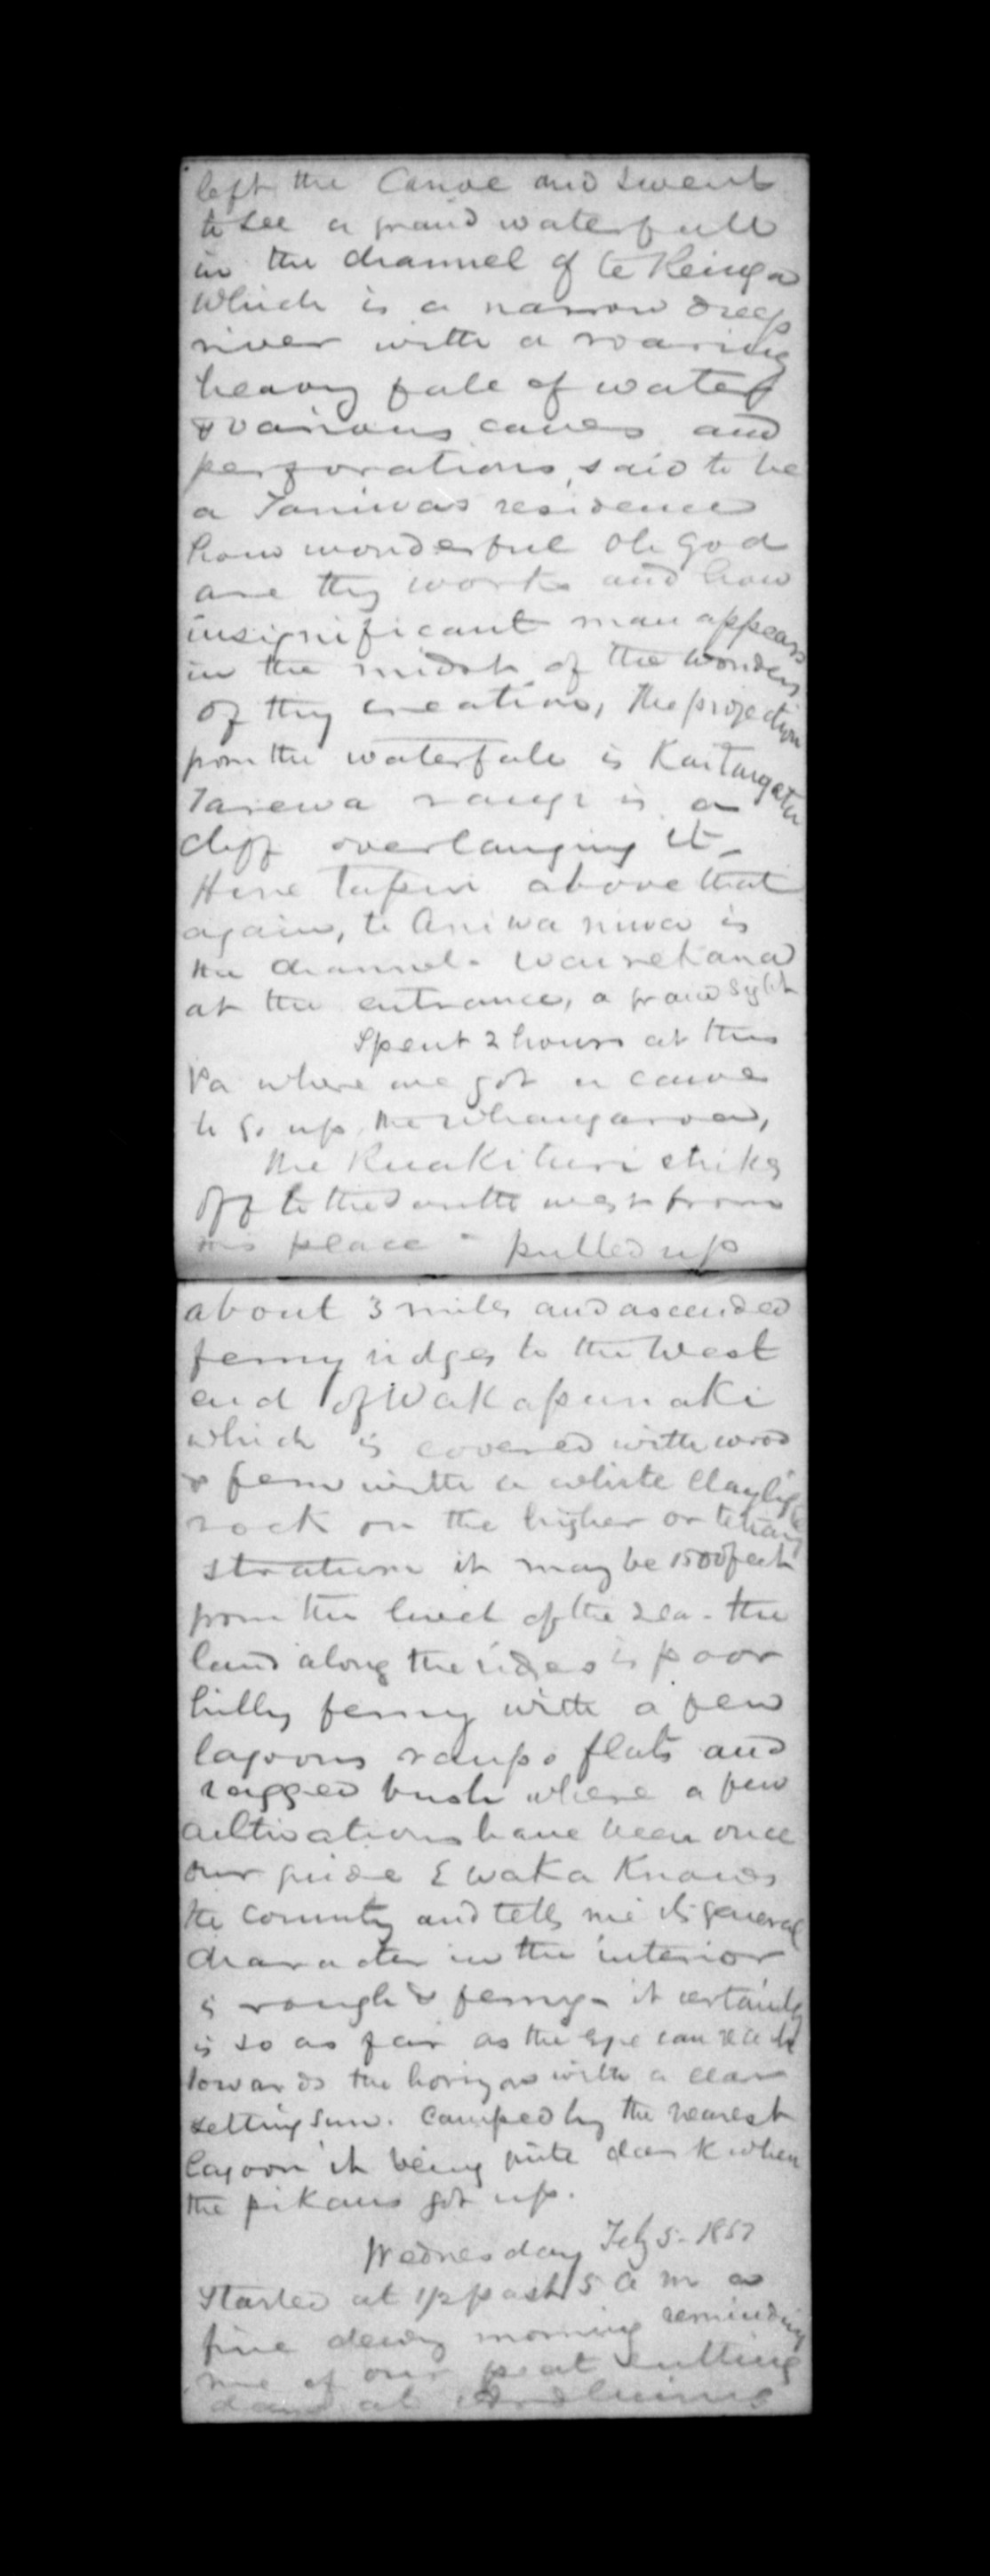 left the Canoe and went
to see a grand waterfall
in the channel of te Reinga
which is a narrow deep
river with a roaring
heavy fall of water
& various caves and
perforations, said to be
a Taniwas residence
how wonderful Oh God
are thy works and how
insignificant man appears
in the midst of the wonders
of thy creation, The projection
from the waterfall is
Tarewa rangi is a
cliff overhanging it -
Hine above that
again, te Aniwa niwa is
the channel -
at the entrance, a grand sight
Spent 2 hours at this
Pa where we got a canoe
to go up the Whangaroa,
the Ruakituri strikes
off to the South west from
this place - pulled up
about 3 miles and ascended
ferny ridges to the West
end of Wakapunaki
which is covered with wood
& fern with a white
rock on the higher or
stratum it may be 1500 feet
from the level of the sea - the
land along the ridges is poor
hilly ferny with a few
lagoons raupo flats and
ragged bush where a few
cultivations have been once
our guide E Waka Knows
the Country and tells me its general
character in the interior
is rough & ferny - it certainly
is so as far as the eye can reach
towards the horizon with a clear
setting Sun. Camped by the nearest
lagoon it being quite dark when
the pikaus got up.
Wednesday Feby 5 - 1851
Started at 1/2 past 5 a m a
fine dewy morning reminding
me of our peat cutting
days at